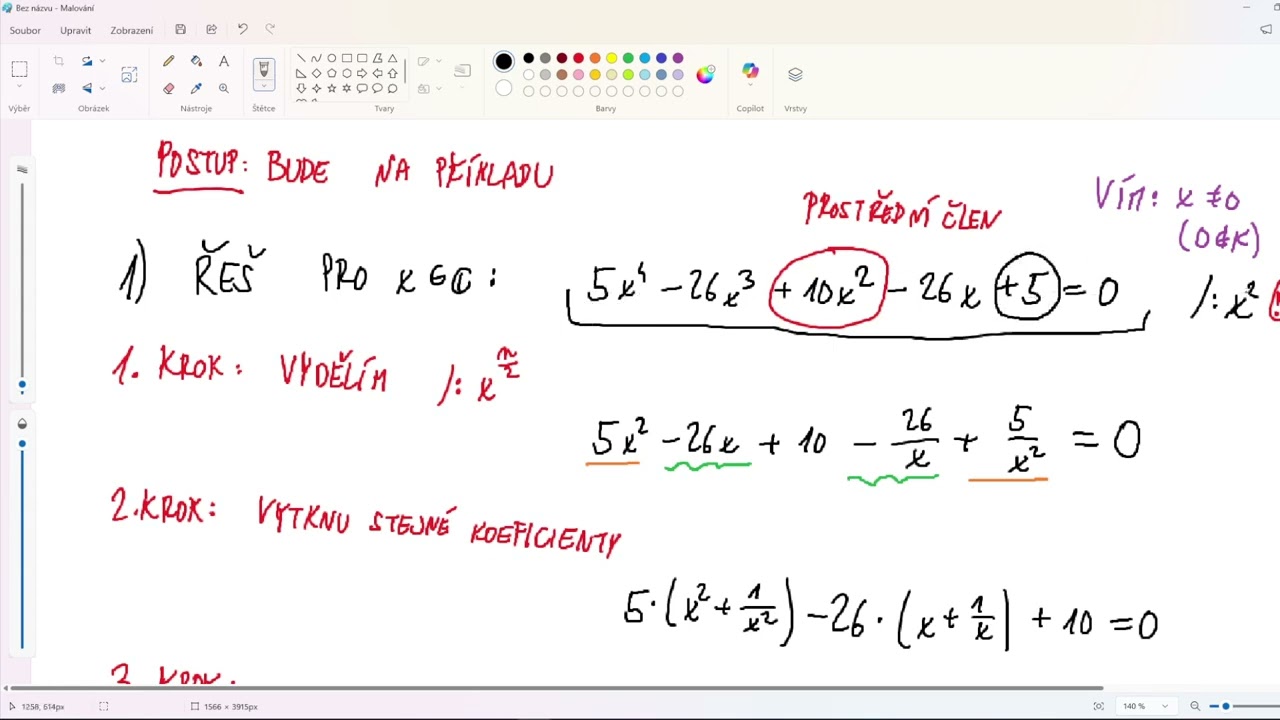 Bez názvu - Malování
Soubor Upravit Zobrazení
Výběr Obrázek Nástroje Štětce Tvary Barvy Copilot Vrstvy
POSTUP: BUDE NA PŘÍKLADU
PROSTŘEDNÍ ČLEN
VÍM: x ≠ 0
(0 ∉ K)
1) ŘEŠ PRO x ∈ ℂ: 5x⁴ - 26x³ + 10x² - 26x + 5 = 0 /: x²
1. KROK: VYDĚLÍM /: x^(n/2)
5x² - 26x + 10 - 26/x + 5/x² = 0
2. KROK: VYTKNU STEJNÉ KOEFICIENTY
5·(x² + 1/x²) - 26·(x + 1/x) + 10 = 0
3. KROK:
1258, 614px 1566 × 3915px 140 %